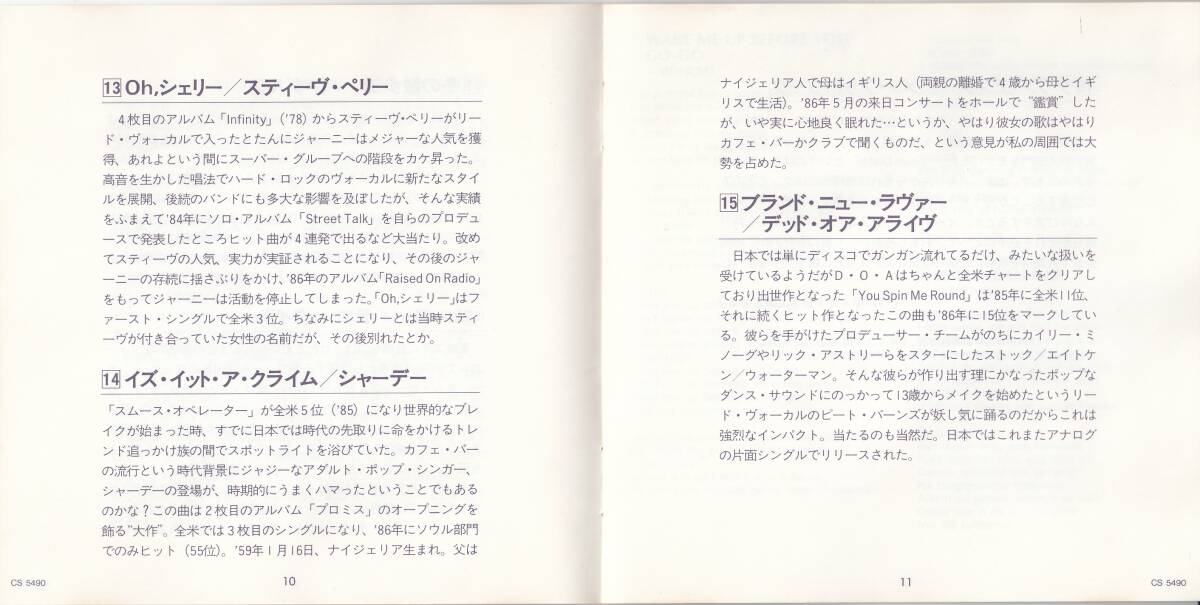 13 Oh,シェリー／スティーヴ・ペリー
4枚目のアルバム「Infinity」（'78）からスティーヴ・ペリーがリー
ド・ヴォーカルで入ったとたんにジャーニーはメジャーな人気を獲
得、あれよという間にスーパー・グループへの階段をカケ昇った。
高音を生かした唱法でハード・ロックのヴォーカルに新たなスタイ
ルを展開、後続のバンドにも多大な影響を及ぼしたが、そんな実績
をふまえて'84年にソロ・アルバム「Street Talk」を自らのプロデュ
ースで発表したところヒット曲が4連発で出るなど大当たり。改め
てスティーヴの人気、実力が実証されることになり、その後のジャ
ーニーの存続に揺さぶりをかけ、'86年のアルバム「Raised On Radio」
をもってジャーニーは活動を停止してしまった。「Oh,シェリー」はフ
ァースト・シングルで全米3位。ちなみにシェリーとは当時スティ
ーヴが付き合っていた女性の名前だが、その後別れたとか。
14 イズ・イット・ア・クライム／シャーデー
「スムース・オペレーター」が全米5位（'85）になり世界的なブレ
イクが始まった時、すでに日本では時代の先取りに命をかけるトレ
ンド追っかけ族の間でスポットライトを浴びていた。カフェ・バー
の流行という時代背景にジャジーなアダルト・ポップ・シンガー、
シャーデーの登場が、時期的にうまくハマったということでもある
のかな？この曲は2枚目のアルバム「プロミス」のオープニングを
飾る"大作"。全米では3枚目のシングルになり、'86年にソウル部門
でのみヒット（55位）。'59年1月16日、ナイジェリア生まれ。父は
CS 5490
10
ナイジェリア人で母はイギリス人（両親の離婚で4歳から母とイギ
リスで生活）。'86年5月の来日コンサートをホールで"鑑賞"した
が、いや実に心地良く眠れた…というか、やはり彼女の歌はやはり
カフェ・バーかクラブで聞くものだ、という意見が私の周囲では大
勢を占めた。
15 ブランド・ニュー・ラヴァー
／デッド・オア・アライヴ
日本では単にディスコでガンガン流れてるだけ、みたいな扱いを
受けているようだがD・O・Aはちゃんと全米チャートをクリアし
ており出世作となった「You Spin Me Round」は'85年に全米11位、
それに続くヒット作となったこの曲も'86年に15位をマークしてい
る。彼らを手がけたプロデューサー・チームがのちにカイリー・ミ
ノーグやリック・アストリーらをスターにしたストック／エイトケ
ン／ウォーターマン。そんな彼らが作り出す理にかなったポップな
ダンス・サウンドにのっかって13歳からメイクを始めたというリー
ド・ヴォーカルのピート・バーンズが妖し気に踊るのだからこれは
強烈なインパクト。当たるのも当然だ。日本ではこれまたアナログ
の片面シングルでリリースされた。
11
CS 5490